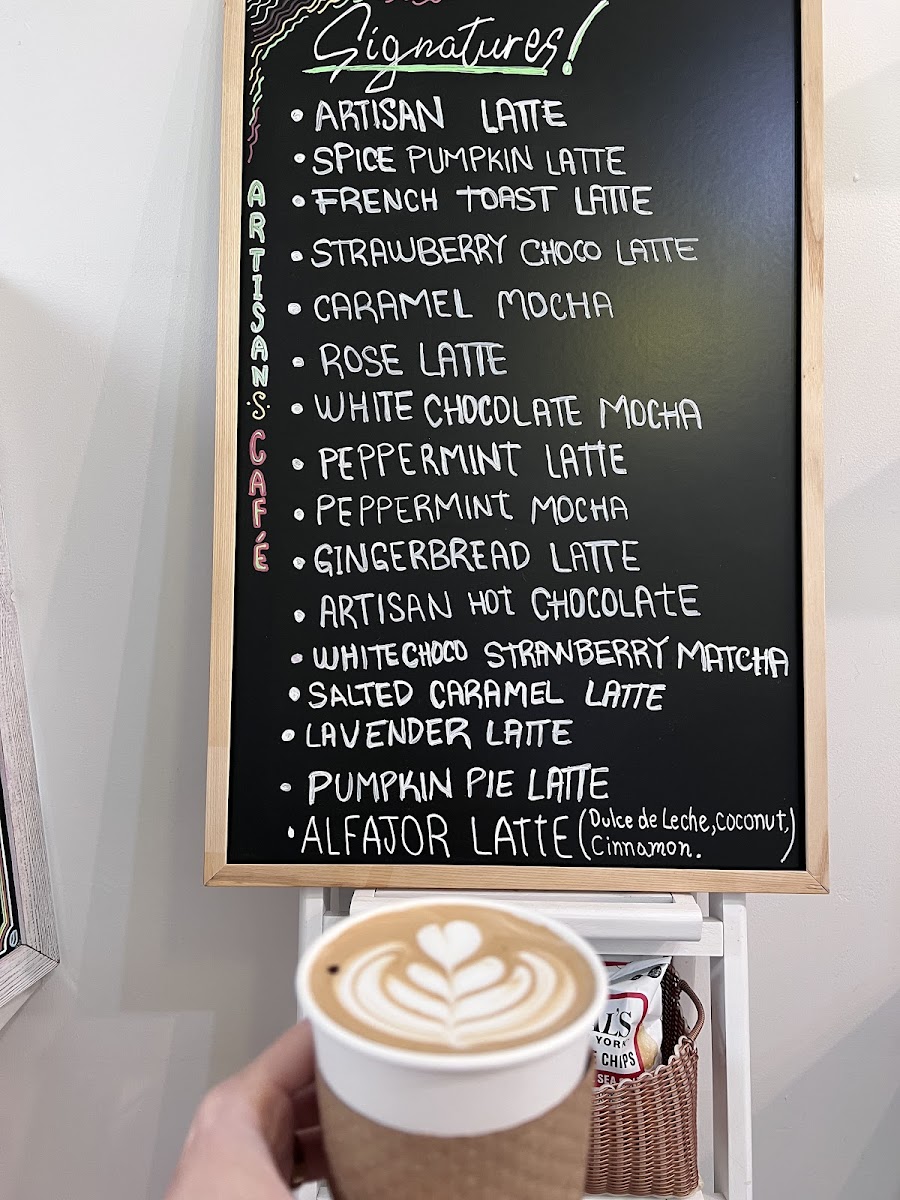 Signatures!
• ARTISAN LATTE
• SPICE PUMPKIN LATTE
• FRENCH TOAST LATTE
• STRAWBERRY CHOCO LATTE
• CARAMEL MOCHA
• ROSE LATTE
• WHITE CHOCOLATE MOCHA
• PEPPERMINT LATTE
• PEPPERMINT MOCHA
• GINGERBREAD LATTE
• ARTISAN HOT CHOCOLATE
• WHITE CHOCO STRAWBERRY MATCHA
• SALTED CARAMEL LATTE
• LAVENDER LATTE
• PUMPKIN PIE LATTE
• ALFAJOR LATTE (Dulce de Leche, Coconut,
Cinnamon.)
ARTISAN'S CAFÉ
AL'S
YORK
CHIPS
SEA